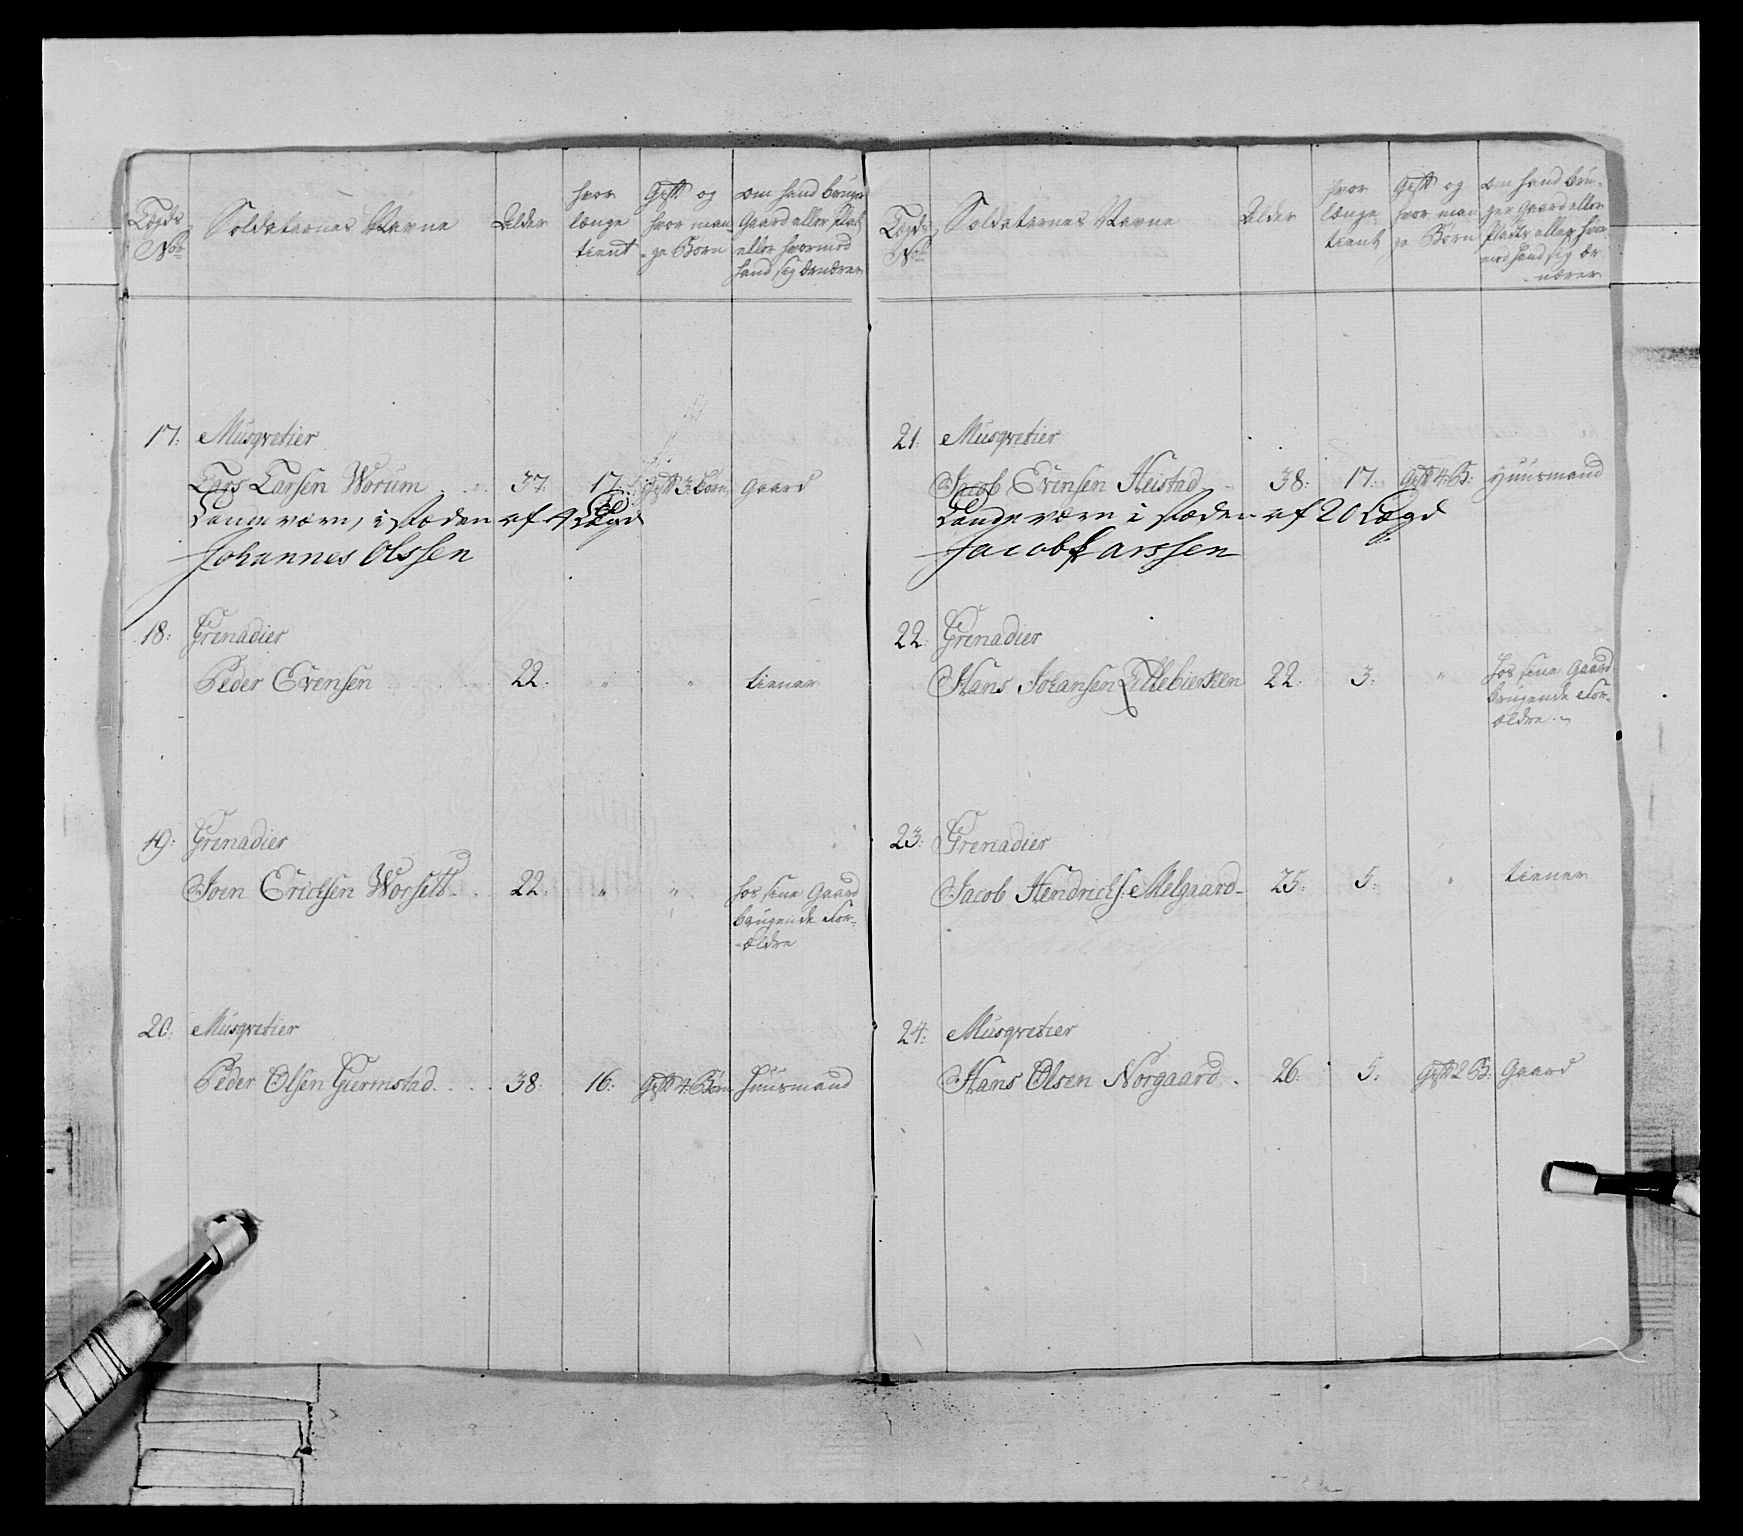 Lægds No Soldaternes Navne Alder hvor længe tient Gift og hvor mange Børn om hand bruger Gaard eller Plads eller hvormed hand sig ernærer
17: Musqvetier
Lars Larsen Worum 37: 17: Gift 3 Børn Gaard
Landeværn, i stæden af 4 Lægd
Johannes Olssen
18: Grenadier
Peder Evensen 22: " " tiener
19: Grenadier
Joen Erichsen Worsett 22: " " hos sine Gaard
brugende For-
-ældre
20: Musqvetier
Peder Olsen Giermstad 38: 16: Gift 4: Børn Huusmand
Lægds No Soldaternes Navne Alder hvor længe tient Gift og hvor mange Børn om hand bruger Gaard eller Plads eller hvormed hand sig ernærer
21: Musqvetier
Jacob Evensen Heistad 38: 17: Gift 4: B: Huusmand
Landeværn i stæden af 20 Lægd
Jacob Larssen
22: Grenadier
Hans Johansen Lillebierken 22: 3: " hos sine Gaard
brugende For-
ældre
23: Grenadier
Jacob Hendrichs: Melgaard 25: 5: " tiener
24: Musqvetier
Hans Olsen Norgaard 26: 5: Gift 2 B: Gaard